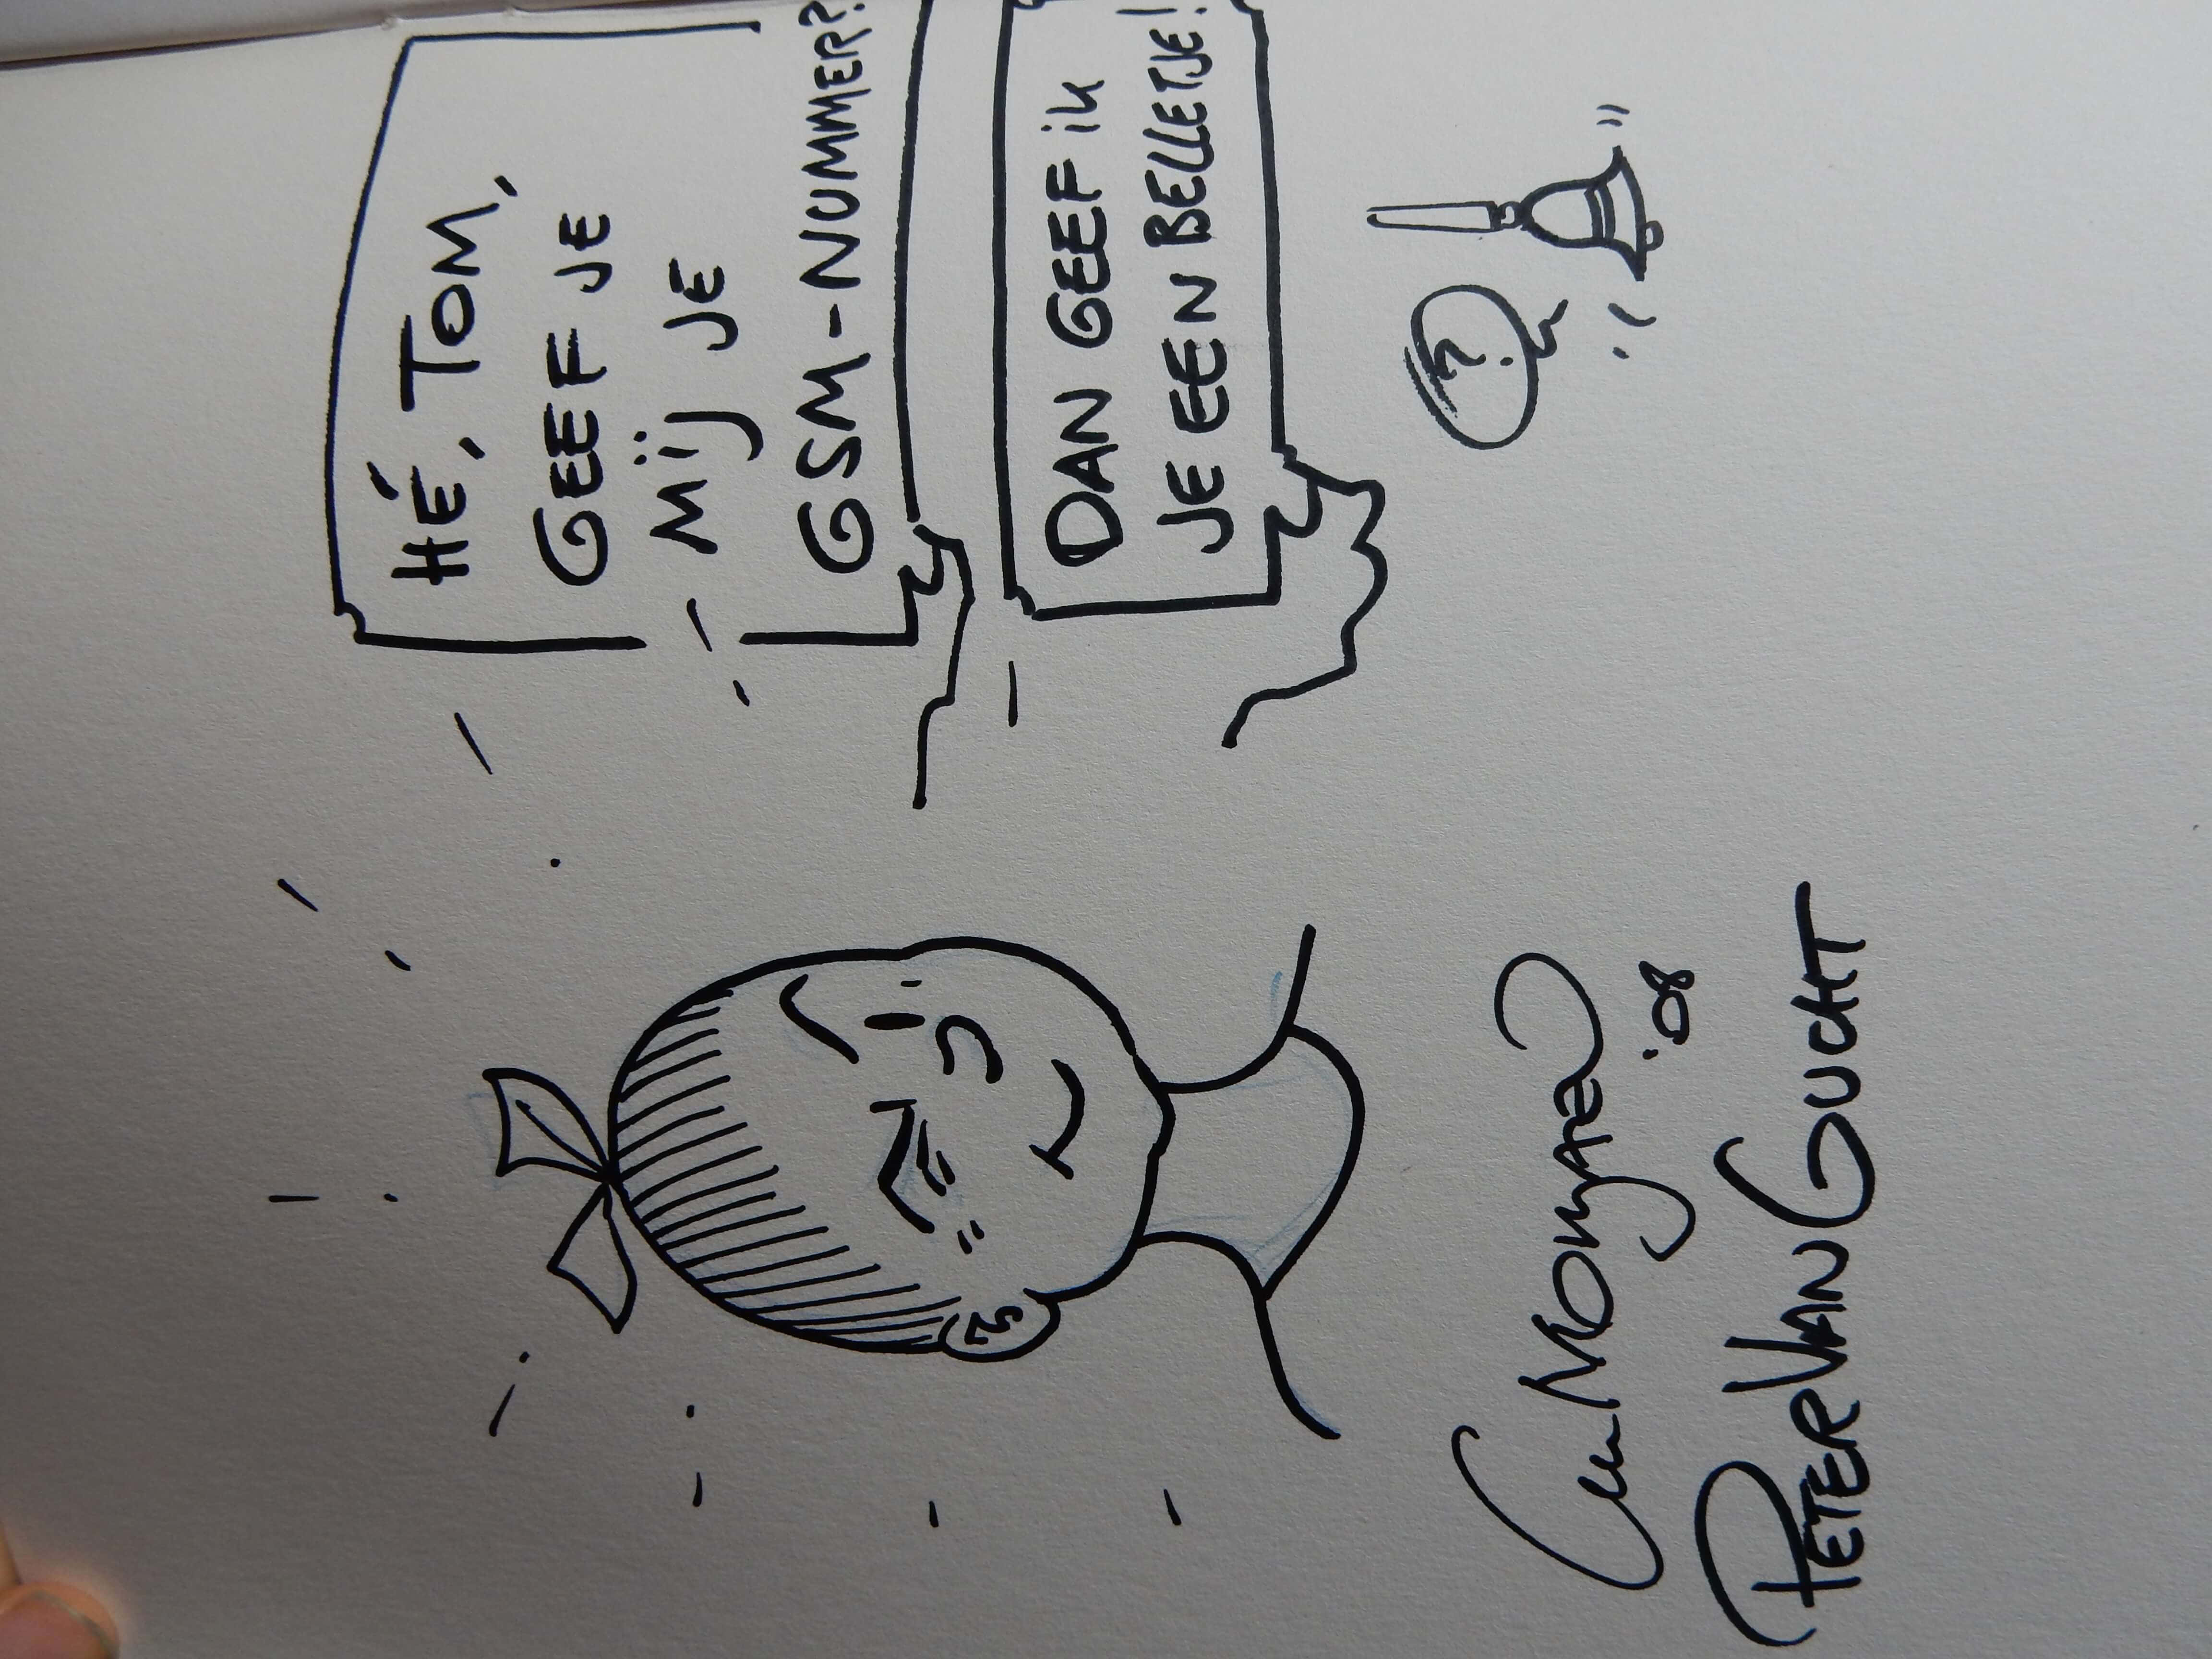 HÉ, TOM,
GEEF JE
MIJ JE
GSM-NUMMER?
DAN GEEF iK
JE EEN BELLETJE!
?
Luc MORJAEU
'08
PETER VAN GUCHT